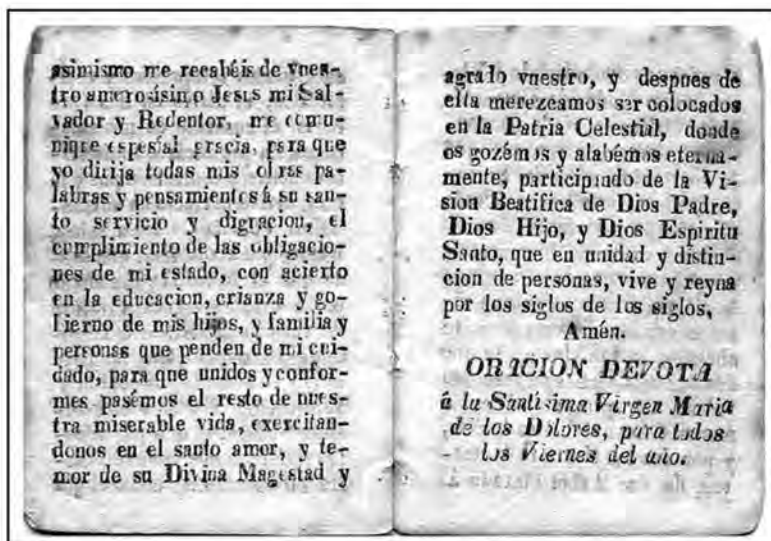 asimismo me recabéis de vues-
tro amorosísimo Jesus mi Sal-
vador y Redentor, me comu-
nique espesial gracia, para que
yo dirija todas mis obras pa-
labras y pensamientos á su san-
to servicio y digracion, el
cumplimiento de las obligacio-
nes de mi estado, con acierto
en la educacion, crianza y go-
bierno de mis hijos, y familia y
personas que penden de mi cui-
dado, para que unidos y confor-
mes pasémos el resto de nues-
tra miserable vida, exercitan-
donos en el santo amor, y te-
mor de su Divina Magestad y
agrado vuestro, y despues de
ella merezcamos ser colocados
en la Patria Celestial, donde
os gozémos y alabémos eterna-
mente, participando de la Vi-
sion Beatifica de Dios Padre,
Dios Hijo, y Dios Espiritu
Santo, que en unidad y distin-
cion de personas, vive y reyna
por los siglos de los siglos,
Amén.
ORACION DEVOTA
á la Santísima Virgen Maria
de los Dolores, para todos
los Viernes del año.